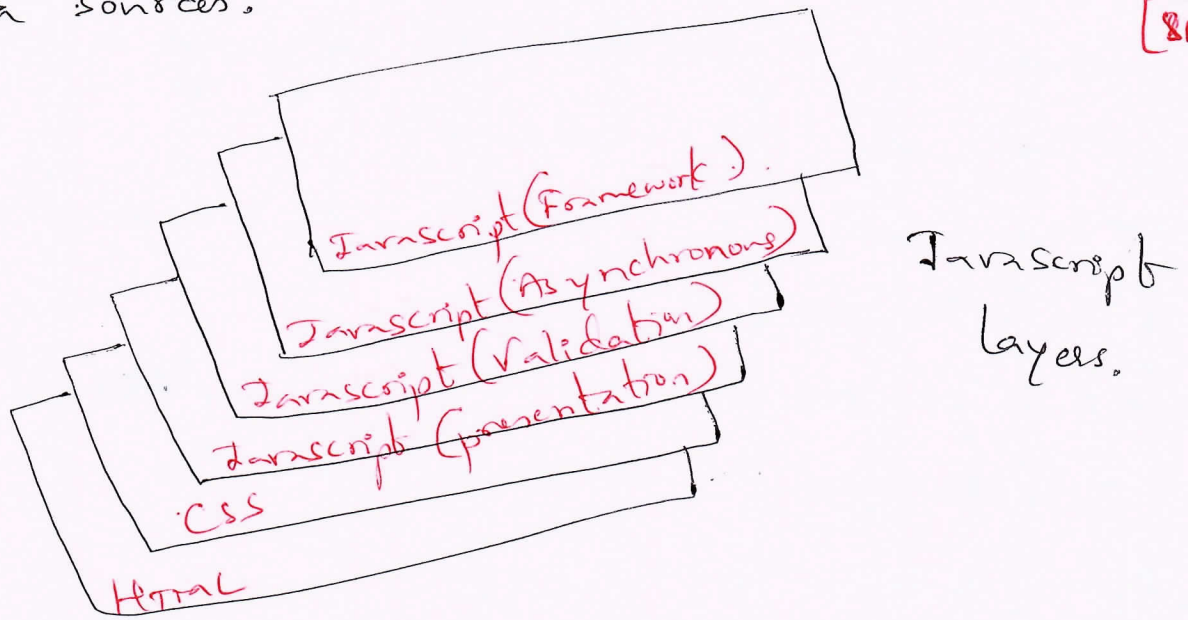 sources.
Javascript (Framework).
Javascript (Asynchronous)
Javascript (Validation)
Javascript (presentation)
CSS
HTML
Javascript
layers.